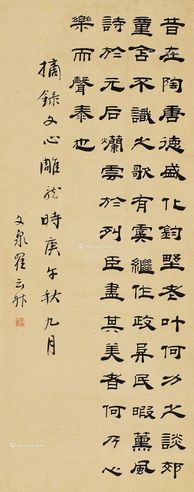 昔在陶唐德盛化鈞野老吐何力之談郊
童含不識之歌有虞繼作政阜民暇薰風
詩於元后爛雲於列臣盡其美者何乃心
樂而聲泰也
摘錄文心雕龍時庚午秋九月
文泉翟云升